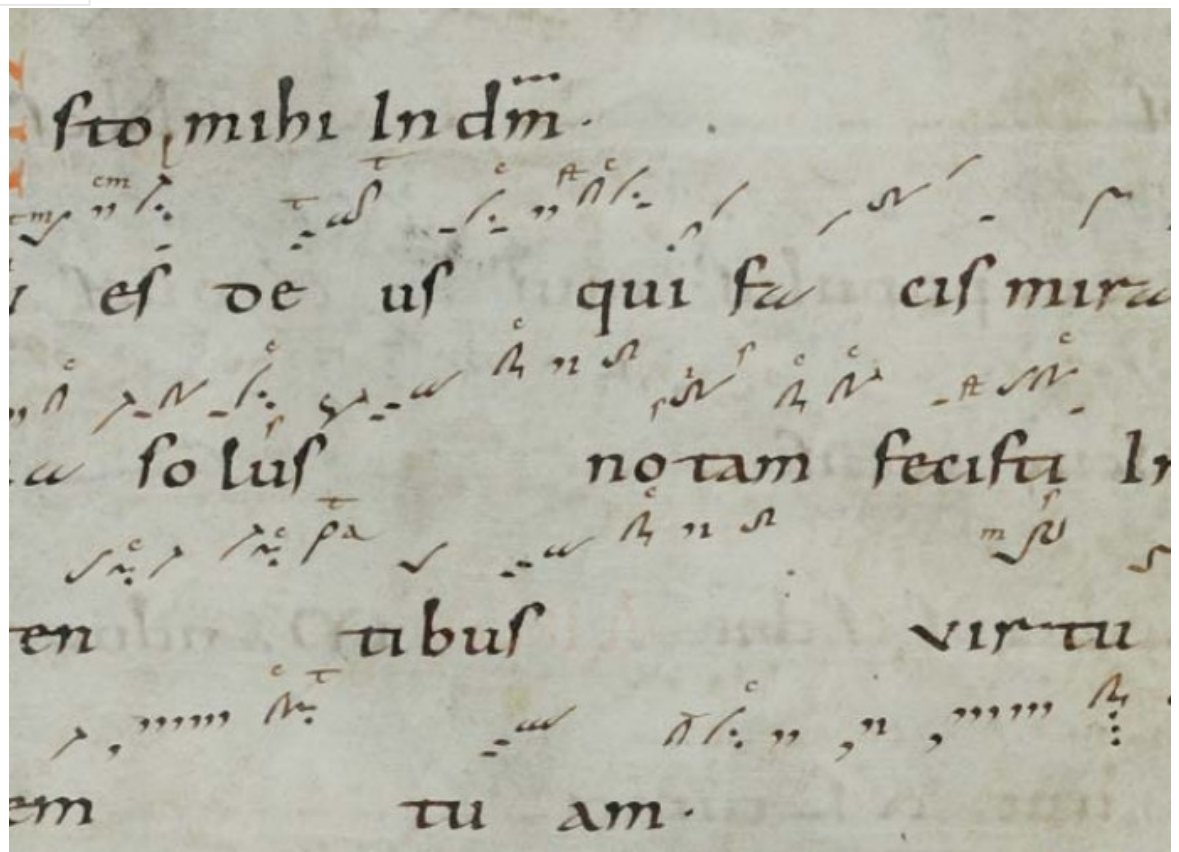 sto mihi In dm̄.
es de us qui fa cis mira
a so lus no tam fecisti In
en tibus vir tu
em tu am.